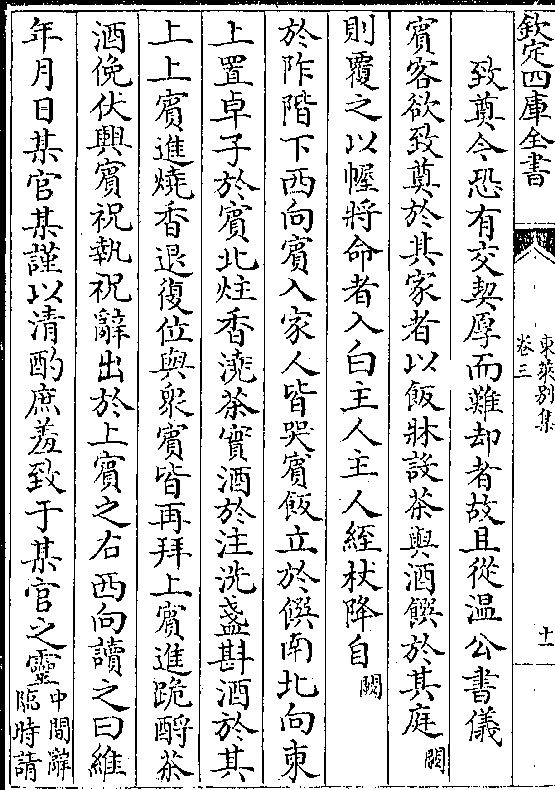 欽定四庫全書
東萊別集
卷三
十一
致奠今恐有交契厚而難却者故且從温公書儀
賓客欲致奠於其家者以飯牀設茶與酒饌於其庭闕
則覆之以幄將命者入白主人主人絰杖降自闕
於阼階下西向賓入家人皆哭賓飯立於饌南北向東
上置卓子於賓北炷香澆茶實酒於注洗盞斟酒於其
上上賓進燒香退復位與衆賓皆再拜上賓進跪酹茶
酒俛伏興賓祝執祝辭出於上賓之右西向讀之曰維
年月日某官某謹以清酌庶羞致于某官之靈中間辭
臨時請